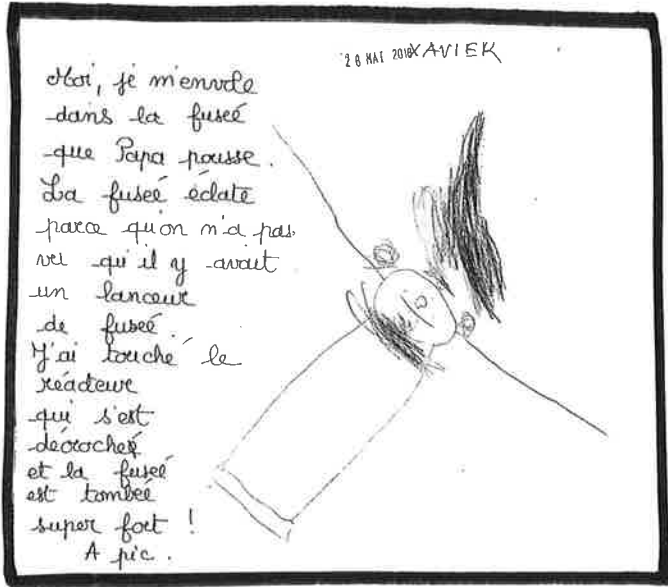 26 MAI 2016 XAVIER
Moi, je m'envole
dans la fusée
que Papa pousse.
La fusée éclate
parce qu'on n'a pas
vu qu'il y avait
un lanceur
de fusée.
J'ai touché le
réacteur
qui s'est
décroché
et la fusée
est tombée
super fort !
A pic.